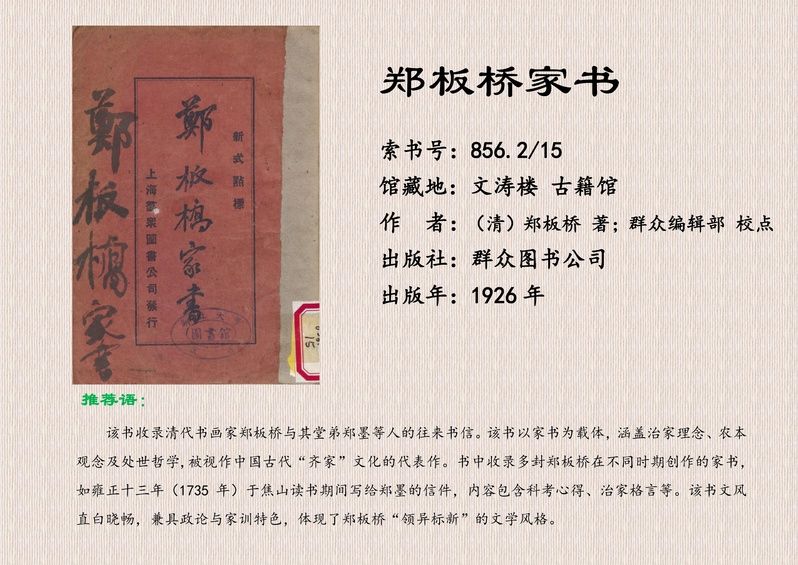 郑板桥家书
新式點標
鄭板橋家書
上海羣衆圖書公司發行
鄭板橋家書
圖書館
索书号：856.2/15
馆藏地：文涛楼 古籍馆
作　者：（清）郑板桥 著；群众编辑部 校点
出版社：群众图书公司
出版年：1926 年
推荐语：
该书收录清代书画家郑板桥与其堂弟郑墨等人的往来书信。该书以家书为载体，涵盖治家理念、农本
观念及处世哲学，被视作中国古代“齐家”文化的代表作。书中收录多封郑板桥在不同时期创作的家书，
如雍正十三年（1735 年）于焦山读书期间写给郑墨的信件，内容包含科考心得、治家格言等。该书文风
直白晓畅，兼具政论与家训特色，体现了郑板桥“领异标新”的文学风格。